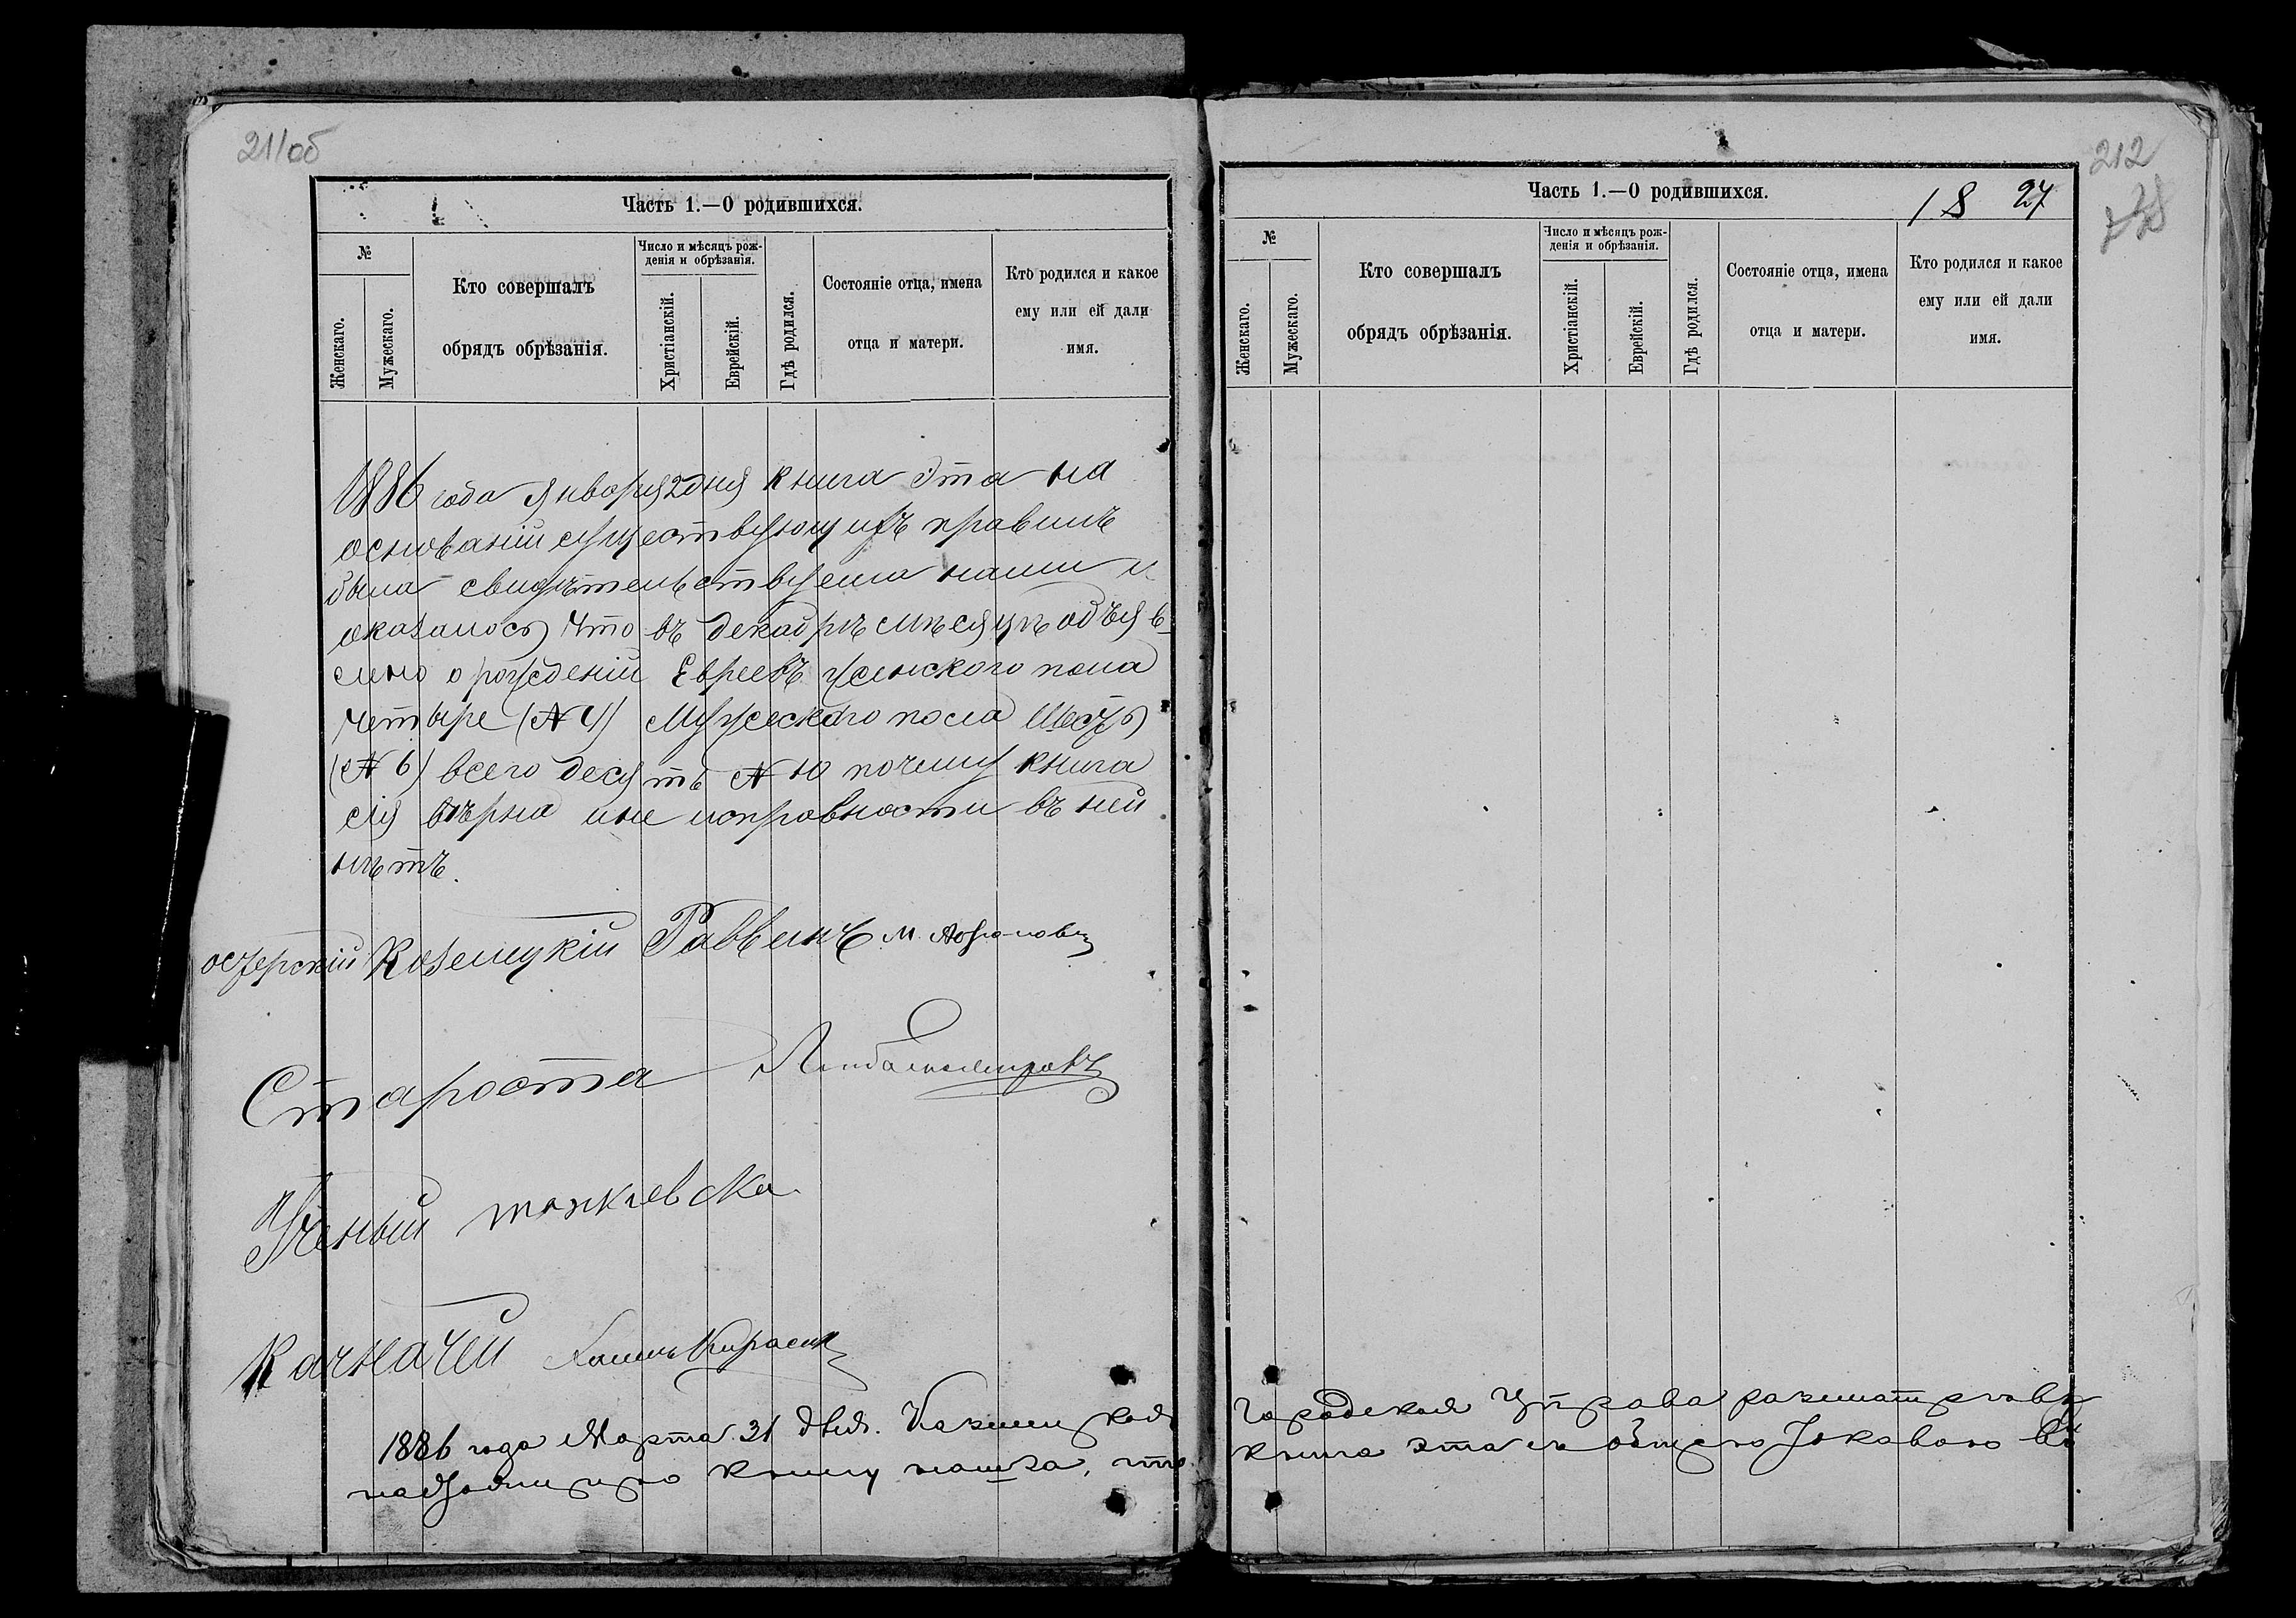 21/об
Часть 1.—О родившихся.
№
Женскаго.
Мужескаго.
Кто совершалъ
обрядъ обрѣзанія.
Число и мѣсяцъ рож-
денія и обрѣзанія.
Христіанскій.
Еврейскій.
Гдѣ родился.
Состояніе отца, имена
отца и матери.
Кто родился и какое
ему или ей дали
имя.
1886 года Января 2 дня книга эта на
основаніи существующихъ правилъ
была свидѣтельствуема нами и
оказалось что въ декабрѣ мѣсяцѣ объяв-
лено о рожденіи Евреевъ женского пола
четыре (№ 4) Мужеского пола Шесть
(№ 6) всего десять № 10 почему книга
сія вѣрна и не исправности въ ней
нѣтъ.
остерскій Козелецкій Раввинъ М.
Староста
Ученый
Казначей
1886 года Марта 31 дня. Козелецкая
книгу нашла, что
212
Часть 1.—О родившихся.
18 27
№
Женскаго.
Мужескаго.
Кто совершалъ
обрядъ обрѣзанія.
Число и мѣсяцъ рож-
денія и обрѣзанія.
Христіанскій.
Еврейскій.
Гдѣ родился.
Состояніе отца, имена
отца и матери.
Кто родился и какое
ему или ей дали
имя.
Городская Управа разсматривая
книга эта съ